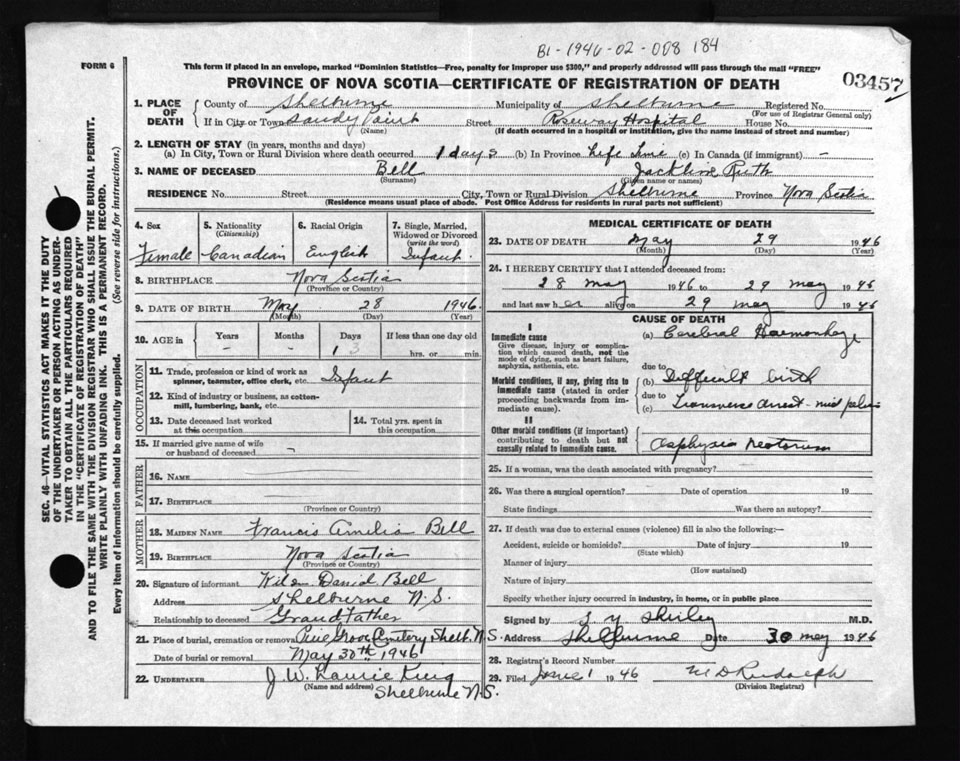 B1-1946-02-008 184
FORM 6
This form if placed in an envelope, marked "Dominion Statistics—Free, penalty for improper use $300," and properly addressed will pass through the mail "FREE"
PROVINCE OF NOVA SCOTIA—CERTIFICATE OF REGISTRATION OF DEATH
03457
1. PLACE OF DEATH
County of Shelburne Municipality of Shelburne Registered No.
(For use of Registrar General only)
If in City or Town Sandy Point Street Roseway Hospital House No.
(Name) (If death occurred in a hospital or institution, give the name instead of street and number)
2. LENGTH OF STAY (in years, months and days)
(a) In City, Town or Rural Division where death occurred 1 days (b) In Province Life Time (c) In Canada (if immigrant) —
3. NAME OF DECEASED Bell Jackline Ruth
(Surname) (Given name or names)
RESIDENCE No. Street City, Town or Rural Division Shelburne Province Nova Scotia
(Residence means usual place of abode. Post Office Address for residents in rural parts not sufficient)
4. Sex
Female
5. Nationality
(Citizenship)
Canadian
6. Racial Origin
English
7. Single, Married, Widowed or Divorced
(write the word)
Infant
8. BIRTHPLACE Nova Scotia
(Province or Country)
9. DATE OF BIRTH May 28 1946
(Month) (Day) (Year)
10. AGE in Years Months Days If less than one day old
– – 1 hrs. or min.
OCCUPATION
11. Trade, profession or kind of work as Infant
spinner, teamster, office clerk, etc.
12. Kind of industry or business, as cotton-
mill, lumbering, bank, etc.
13. Date deceased last worked
at this occupation
14. Total yrs. spent in
this occupation
15. If married give name of wife
or husband of deceased
FATHER
16. NAME
17. BIRTHPLACE
(Province or Country)
MOTHER
18. MAIDEN NAME Francis Amelia Bell
19. BIRTHPLACE Nova Scotia
(Province or Country)
20. Signature of informant David Bell
Address Shelburne N.S.
Relationship to deceased Grand Father
21. Place of burial, cremation or removal Pine Grove Cemetery, Shelb. N.S.
Date of burial or removal May 30th 1946
22. UNDERTAKER J. W. Laurie King
(Name and address) Shelburne N.S.
MEDICAL CERTIFICATE OF DEATH
23. DATE OF DEATH May 29 1946
(Month) (Day) (Year)
24. I HEREBY CERTIFY that I attended deceased from:
28 May 1946 to 29 May 1946
and last saw her alive on 29 May 1946
CAUSE OF DEATH
I
Immediate cause
Give disease, injury or complica-
tion which caused death, not the
mode of dying, such as heart failure,
asphyxia, asthenia, etc.
(a) Cerebral Haemorrhage
due to
Morbid conditions, if any, giving rise to
immediate cause (stated in order
proceeding backwards from im-
mediate cause).
(b) Difficult birth
due to
(c) Transverse arrest - mid pelvis
II
Other morbid conditions (if important)
contributing to death but not
causally related to immediate cause.
asphyxia neotorum
25. If a woman, was the death associated with pregnancy?
26. Was there a surgical operation? Date of operation 19
State findings Was there an autopsy?
27. If death was due to external causes (violence) fill in also the following:—
Accident, suicide or homicide? Date of injury 19
(State which)
Manner of injury
(How sustained)
Nature of injury
Specify whether injury occurred in industry, in home, or in public place
Signed by Shirley M.D.
Address Shelburne Date 30 May 1946
28. Registrar's Record Number
29. Filed June 1 1946 M D Rudolph
(Division Registrar)
SEC. 46—VITAL STATISTICS ACT MAKES IT THE DUTY
OF THE UNDERTAKER OR PERSON ACTING AS UNDER-
TAKER TO OBTAIN ALL THE PARTICULARS REQUIRED
IN THE "CERTIFICATE OF REGISTRATION OF DEATH"
AND TO FILE THE SAME WITH THE DIVISION REGISTRAR WHO SHALL ISSUE THE BURIAL PERMIT.
WRITE PLAINLY WITH UNFADING INK. THIS IS A PERMANENT RECORD.
Every item of information should be carefully supplied. (See reverse side for instructions.)